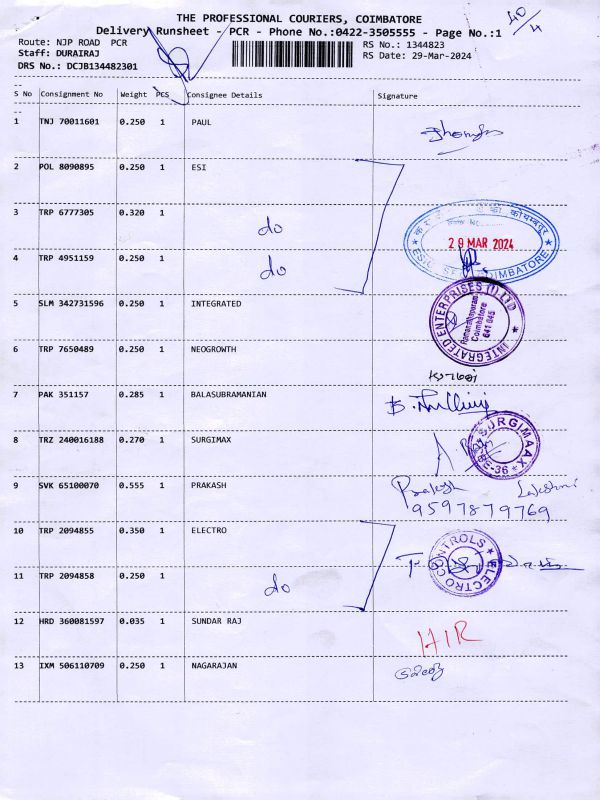 THE PROFESSIONAL COURIERS, COIMBATORE
Delivery Runsheet - PCR - Phone No.:0422-3505555 - Page No.:1
40/4
Route: NJP ROAD PCR
RS No.: 1344823
Staff: DURAIRAJ
RS Date: 29-Mar-2024
DRS No.: DCJB134482301
S No Consignment No Weight PCS Consignee Details Signature
1 TNJ 70011601 0.250 1 PAUL
2 POL 8090895 0.250 1 ESI
3 TRP 6777305 0.320 1 do
29 MAR 2024
COIMBATORE
4 TRP 4951159 0.250 1 do
5 SLM 342731596 0.250 1 INTEGRATED
INTEGRATED ENTERPRISES (I) LTD
Ramanathapuram
Coimbatore
641 045
6 TRP 7650489 0.250 1 NEOGROWTH
7 PAK 351157 0.285 1 BALASUBRAMANIAN
8 TRZ 240016188 0.270 1 SURGIMAX
SURGIMAAX
CBE-36
9 SVK 65100070 0.555 1 PRAKASH Prakash Lakshmi
9597879769
10 TRP 2094855 0.350 1 ELECTRO
ELECTRO CONTROLS
11 TRP 2094858 0.250 1 do
12 HRD 360081597 0.035 1 SUNDAR RAJ
13 IXM 506110709 0.250 1 NAGARAJAN